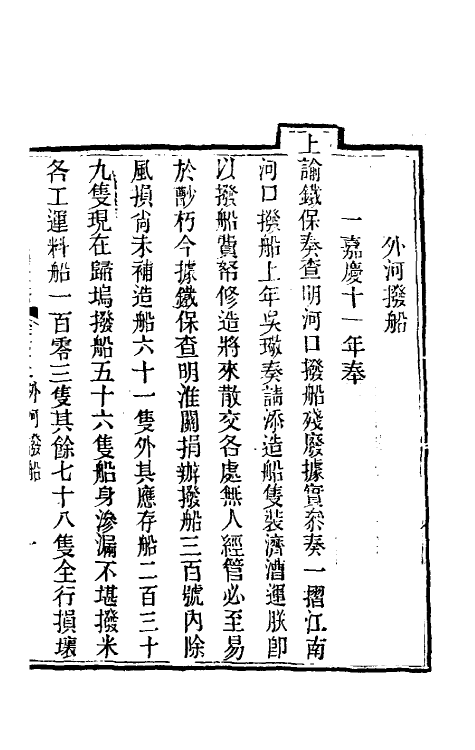 外河撥船
一嘉慶十一年奉
上諭鐵保奏查明河口撥船殘廢據實叅奏一摺江南
河口撥船上年吳璥奏請添造船隻裝濟漕運朕卽
以撥船費帑修造將來散交各處無人經管必至易
於艌朽今據鐵保查明淮關捐辦撥船三百號內除
風損尙未補造船六十一隻外其應存船二百三十
九隻現在歸塢撥船五十六隻船身滲漏不堪撥米
各工運料船一百零三隻其餘七十八隻全行損壞
外河撥船
一